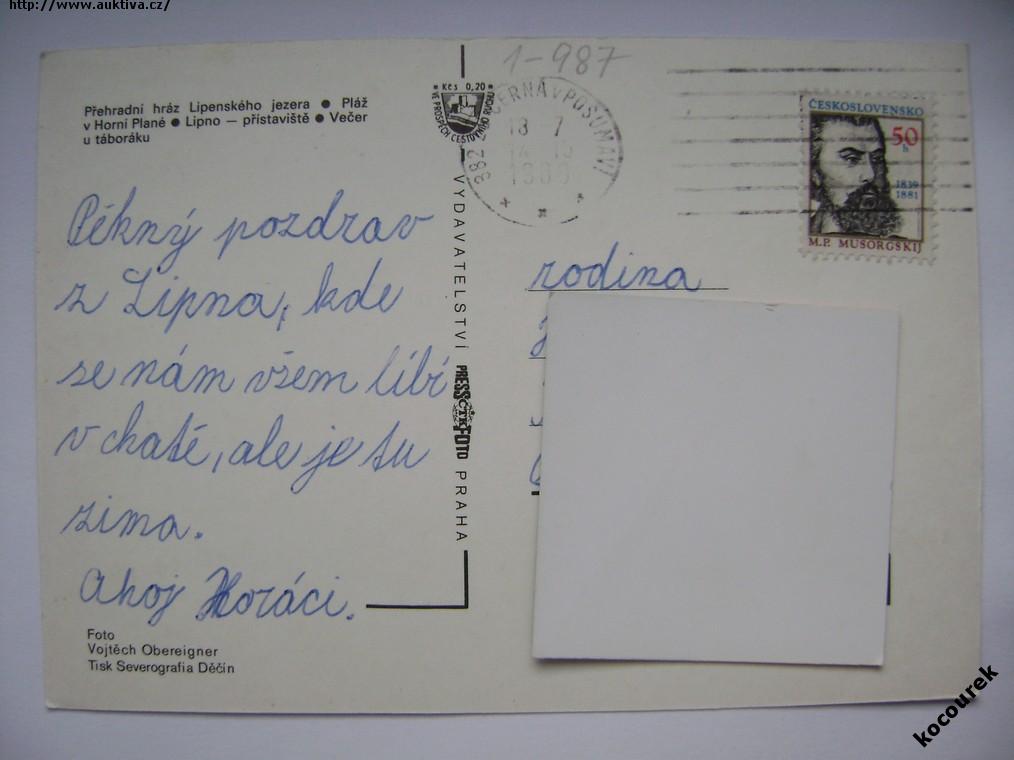 http://www.auktiva.cz/
1-987
Přehradní hráz Lipenského jezera ● Pláž
v Horní Plané ● Lipno — přístaviště ● Večer
u táboráku
Kčs 0,20
VE PROSPĚCH CESTOVNÍHO RUCHU
382 ČERNÁ V POŠUMAVÍ
18 7
ČESKOSLOVENSKO
50
h
1839
1881
M.P. MUSORGSKIJ
Pěkný pozdrav
z Lipna, kde
se nám všem líbí
v chatě, ale je tu
zima.
Ahoj Horáci.
VYDAVATELSTVÍ PRESSFOTO PRAHA
ČTK
rodina
Foto
Vojtěch Obereigner
Tisk Severografia Děčín
kocourek